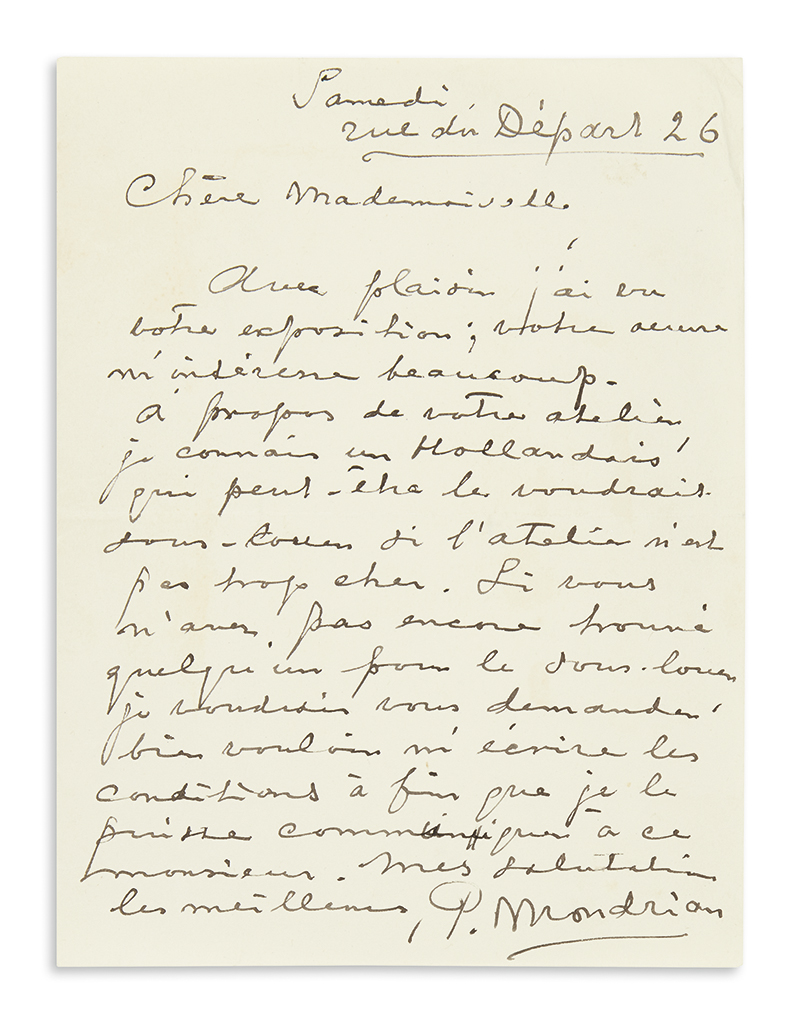 Samedi
rue du Départ 26
Chère Mademoiselle
Avec plaisir j'ai vu
votre exposition; votre œuvre
m'intéresse beaucoup.
à propos de votre atelier
je connais un Hollandais
qui peut-être le voudrais
sous-louer si l'atelier n'est
pas trop cher. Si vous
n'avez pas encore trouvé
quelqu'un pour le sous-louer
je voudrais vous demander
bien vouloir m'écrire les
conditions à fin que je le
puisse communiquer à ce
monsieur. Mes salutations
les meilleures, P. Mondrian